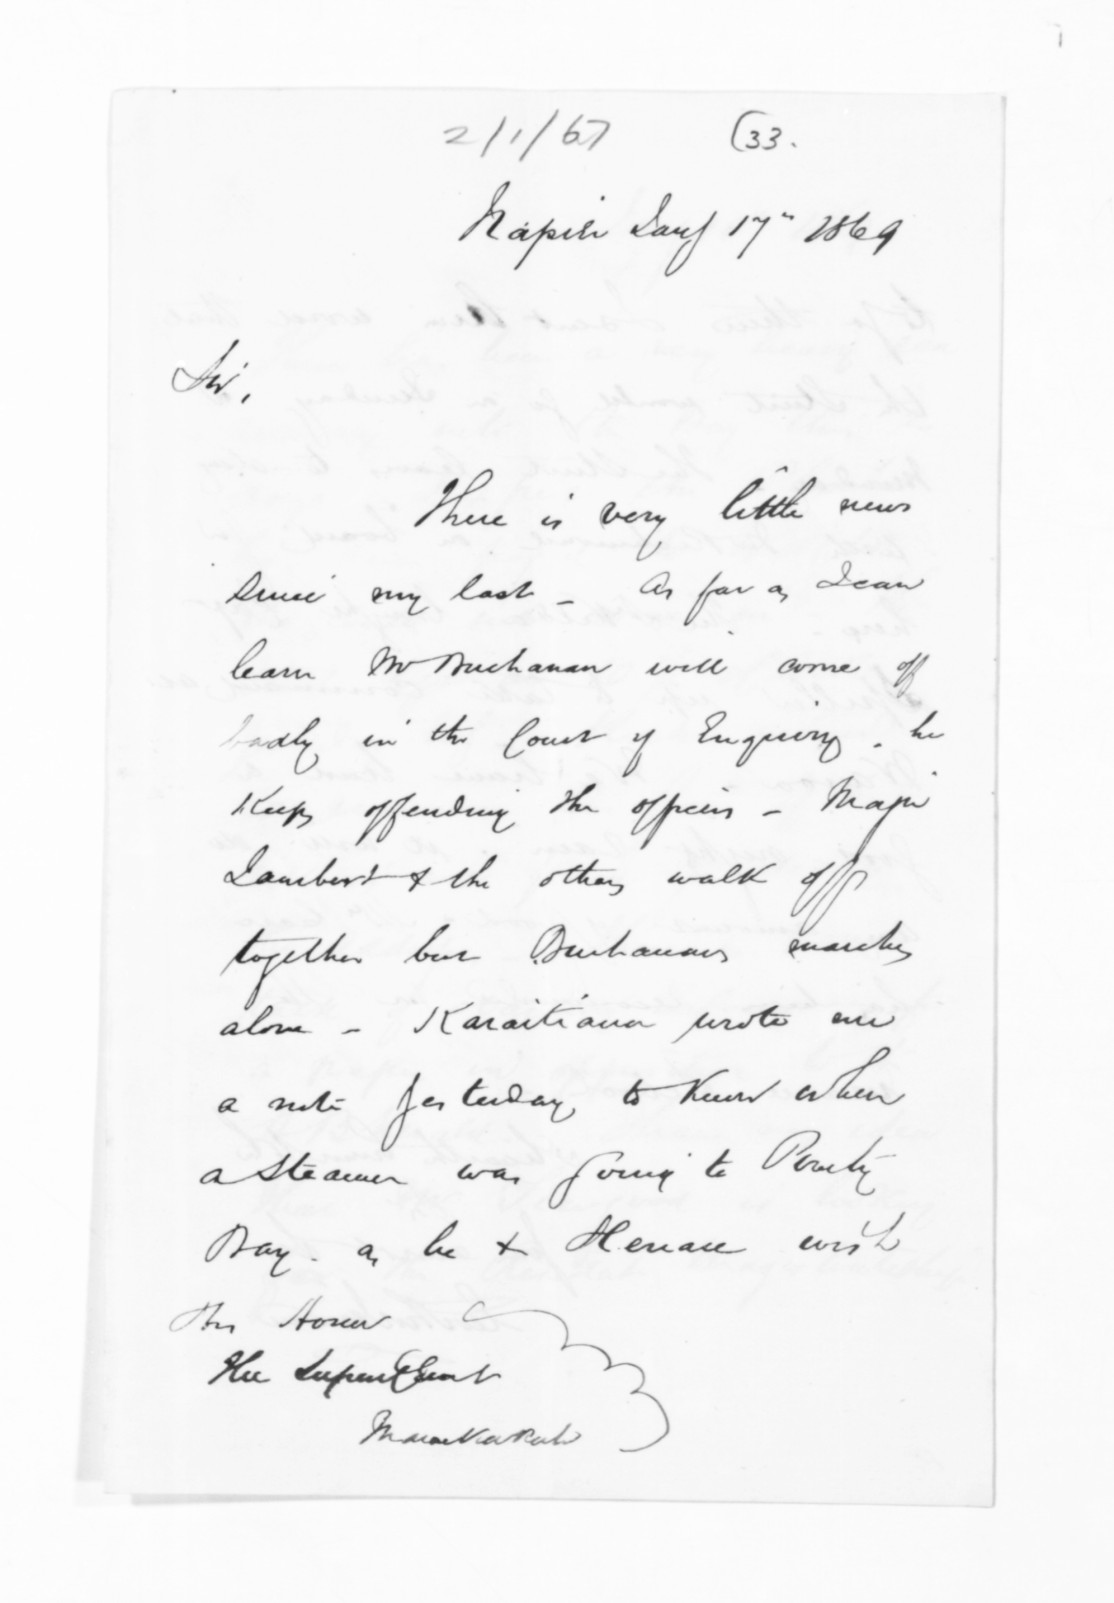 2/1/67 (33.
Napier Jany 17th 1869
Sir,
There is very little news
since my last - As far as I can
learn Mr Buchanan will come off
badly in the Court of Enquiry. he
keeps offending the officers - Major
Lambert & the others walk off
together but Buchanan marches
alone - Karaitiana wrote me
a note yesterday to know when
a steamer was going to Poverty
Bay. as he & Henare wish
His Honor
The Superintendent